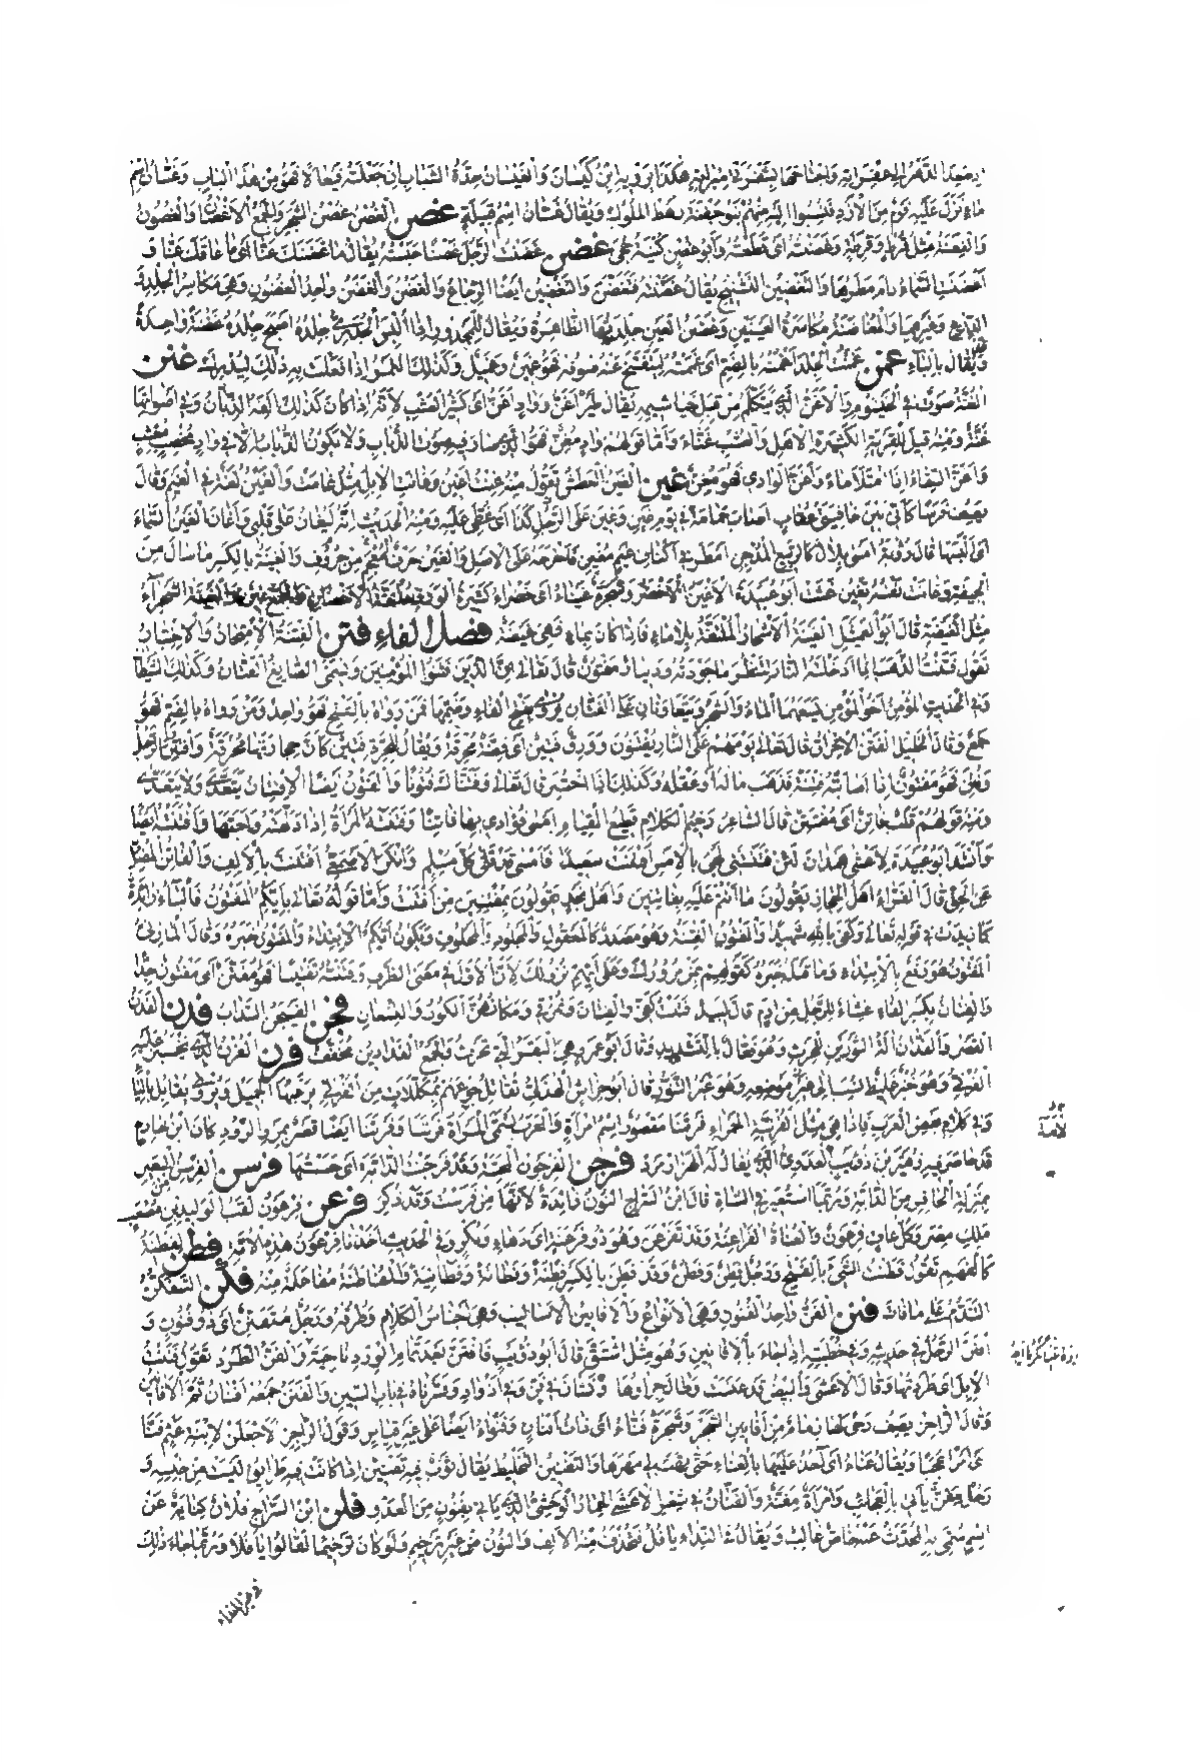 ماء نزل عليه قوم من الأزد فنسبوا إليه منهم بنو جفنة رهط الملوك ويقال غسان اسم قبيلة غصن الغصن غصن الشجر والجمع الأغصان والغصون
والغصنة مثل قرط وقرطة وغصنت أي قطعته وأبو غصن كنية جحى غضن غضنت الرجل غضنا حبسته يقال ما غضنك عنا أي ما عاقك عنا و
أغضنت السماء دام مطرها والتغضين التشنيج يقال غضنته فتغضن والتغضين أيضا الرجاع والغضن والغضن واحد الغضون وهي مكاسر الجلد و
الدرع وغيرهما والمغاضنة مكاسرة العينين وغضن العين جلدتها الظاهرة ويقال للمجدور إذا ألبس الجدري جلده أصبح جلده غضنة واحدة
ويقال بالباء غمن غمنت الجلد أغمنه بالضم أي غممته لينفسخ عنه صوفه فهو غمين وغميل وكذلك البسر إذا فعلت به ذلك ليدرك غنن
الغنة صوت في الخيشوم والأغن الذي يتكلم من قبل خياشيمه يقال طير أغن وواد أغن أي كثير العشب لأنه إذا كان كذلك ألفه الذبان وفي أصواتها
غنة ومنه قيل للقرية الكثيرة الأهل والعشب غناء وأما قولهم واد مغن فهو الذي صار فيه صوت الذباب ولا يكون الذباب إلا في واد مخصب معشب
وأغن السقاء إذا امتلأ ماء وأغن الوادي فهو مغن غين الغين العطش تقول منه غنت أغين وغانت الإبل مثل غامت والغين لغة في الغيم وقال
يصف فرسا كأني بين خافيتي عقاب أصاب حمامة في يوم غين وغين على الرجل كذا أي غطي عليه ومنه الحديث إنه ليغان على قلبي وأغان الغين السماء
أي ألبسها قال رؤبة أمسى بلال كالربيع المدجن أمطر في أكناف غيم مغين فأخرجه على الأصل والغين حرف المعجم من حروف والغينة بالكسر ما سال من
الجيفة وغانت نفسه تغين غثت أبو عبيدة الأغين الأخضر وشجرة غيناء أي خضراء كثيرة الورق ملتفة الأغصان والجمع غين والغينة الشجراء
مثل الغيضة قال أبو العميثل الغينة الأشجار الملتفة بلا ماء فإذا كان بماء فهي غيضة فصل الفاء فتن الفتنة الامتحان والاختبار
تقول فتنت الذهب إذا أدخلته النار لتنظر ما جودته ودينار مفتون قال تعالى إن الذين فتنوا المؤمنين ويسمى الصائغ الفتان وكذلك الشيطان
وفي الحديث المؤمن أخو المؤمن يسعهما الماء والشجر ويتعاونان على الفتان يروى بفتح الفاء وضمها فمن رواه بالفتح فهو واحد ومن رواه بالضم فهو
جمع وقال الخليل الفتن الإحراق قال تعالى يوم هم على النار يفتنون وورق فتين أي فضة محرقة ويقال للحرة فتين كأن حجارتها محرقة وافتتن الرجل
وفتن فهو مفتون إذا أصابته فتنة فذهب ماله أو عقله وكذلك إذا اختبر قال تعالى وفتناك فتونا والفتون أيضا الافتتان يتعدى ولا يتعدى
ومنه قولهم قلب فاتن أي مفتتن قال الشاعر رخيم الكلام قطيع القيام أمسى فؤادي بها فاتنا وفتنته المرأة إذا دلهته وأحبها وأفتنته أيضا
وأنشد أبو عبيدة لأعشى همدان لئن فتنتني لهي بالأمس أفتنت سعيدا فأمسى قد قلى كل مسلم وأنكر الأصمعي أفتنت بالألف والفاتن المضل
عن الحق قال الفراء أهل الحجاز يقولون ما أنتم عليه بفاتنين وأهل نجد يقولون بمفتنين من أفتنت وأما قوله تعالى بأيكم المفتون فالباء زائدة
كما زيدت في قوله تعالى وكفى بالله شهيدا والمفتون الفتنة وهو مصدر كالمعقول والمجلود والمحلوف ويكون أيكم الابتداء والمفتون خبره وقال المازني
المفتون هو رفع بالابتداء وما قبله خبره كقولهم بمن مرورك وعلى أيهم نزولك لأن الأول في معنى الظرف وفتنته تفتينا فهو مفتن أي مفتون جدا
والفتان بكسر الفاء غشاء للرحل من أدم قال لبيد فثنيت كفي والفتان ونمرقي ومكانهن الكور والنسعان فجن الفيجن السذاب فدن الفدن
القصر والفدان آلة الثورين للحرث وهو فعال بالتشديد وقال أبو عمرو هي البقر التي تحرث والجمع الفدادين مخفف فرن الفرن الذي يخبز عليه
الفرني وهو خبز غليظ نسب إلى موضعه وهو غير التنور قال أبو خراش الهذلي نقاتل جوعهم بمكللات من الفرني يرعبها الجميل ويروى يقابل بالباء
وفي كلام بعض العرب فإذا هي مثل الفرنية الحمراء فرتن فرتنا مقصور اسم امرأة والعرب تسمي المرأة فرتنا وفرتنا أيضا قصر بمرو الروذ كان ابن خازم
قد حاصر فيه زهير بن ذؤيب العدوي الذي يقال له الهزارمرد فرجن الفرجون المحسة وقد فرجنت الدابة أي حسستها فرسن الفرسن للبعير
بمنزلة الحافر من الدابة وربما استعير في الشاة قال ابن السراج النون زائدة لأنها من فرست وقد ذكر فرعن فرعون لقب الوليد بن مصعب
ملك مصر وكل عات فرعون والعتاة الفراعنة وقد تفرعن وهو ذو فرعنة أي دهاء ونكر وفي الحديث أخذنا فرعون هذه الأمة فطن الفطنة
كالفهم تقول فطنت للشيء بالفتح ورجل فطن وفطن وقد فطن بالكسر فطنة وفطانة وفطانية والمفاطنة مفاعلة منه فكن التفكن
التندم على ما فات فنن الفن واحد الفنون وهي الأنواع والأفانين الأساليب وهي أجناس الكلام وطرقه ورجل متفنن أي ذو فنون و
افتن الرجل في حديثه وفي خطبته إذا جاء بالأفانين وهو مثل اشتق قال أبو ذؤيب فافتن بعد تمام الورد ناجية والفن الطرد تقول فننت
الإبل أي طردتها وقال الأعشى والبيض قد عنست وطال جراؤها ونشأن في فن وفي أذواد وفسرناه في باب السين والفنن جمعه أفنان ثم الأفانين
وقال الراجز يصف رحى لها زمام من أفانين الشجر وشجرة فناء أي ذات أفنان وفنواء أيضا على غير قياس وقول الراجز لأجعلن لابنة عثم فنا
أي أمرا عجبا ويقال عناء أي آخذ عليها بالعناء حتى يهب لي مهرها والتفنين التخليط يقال ثوب فيه تفنين إذا كانت فيه طرائق ليست من جنسه و
رجل مفن يأتي بالعجائب وامرأة مفنة والفنان في شعر الأعشى الحمار الوحشي الذي يأتي بفنون من العدو فلن ابن السراج فلان كناية عن
اسم سمي به المحدث عنه خاص غالب ويقال في النداء يا فل تحذف منه الألف والنون من غير ترخيم ولو كان ترخيما لقالوا يا فلا وربما جاء ذلك